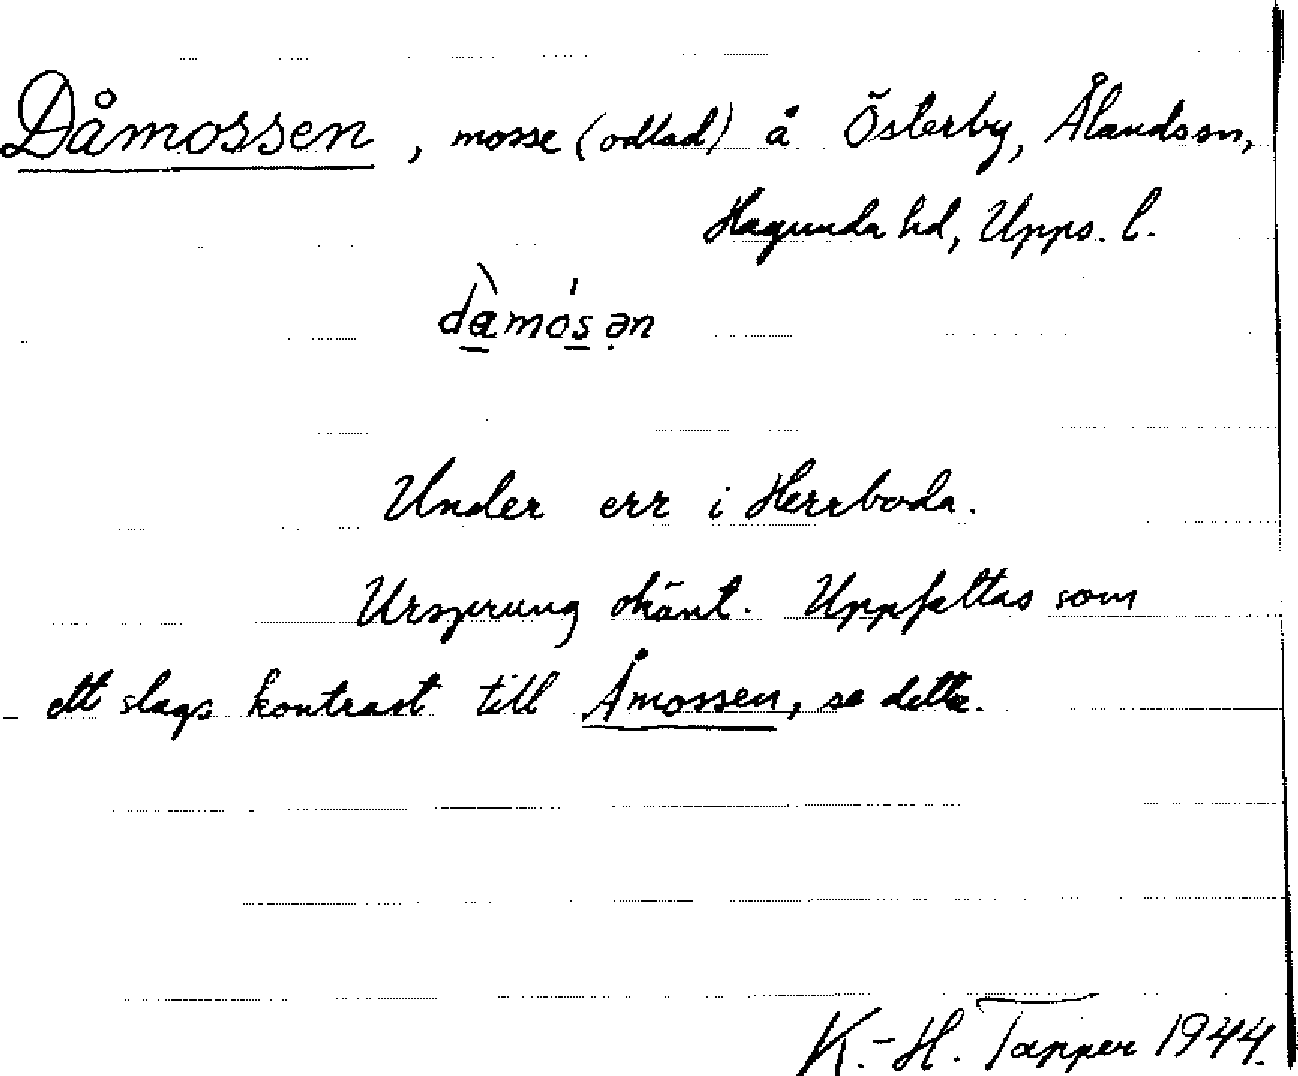 Dåmossen, mosse (odlad) å Österby, Ålandssn,
Hagunda hd, Upps. l.
Under err i Herrboda.
Ursprung okänt. Uppfattas som
ett slags kontrast till Åmossen, se detta.
K.-H. Tapper 1944.